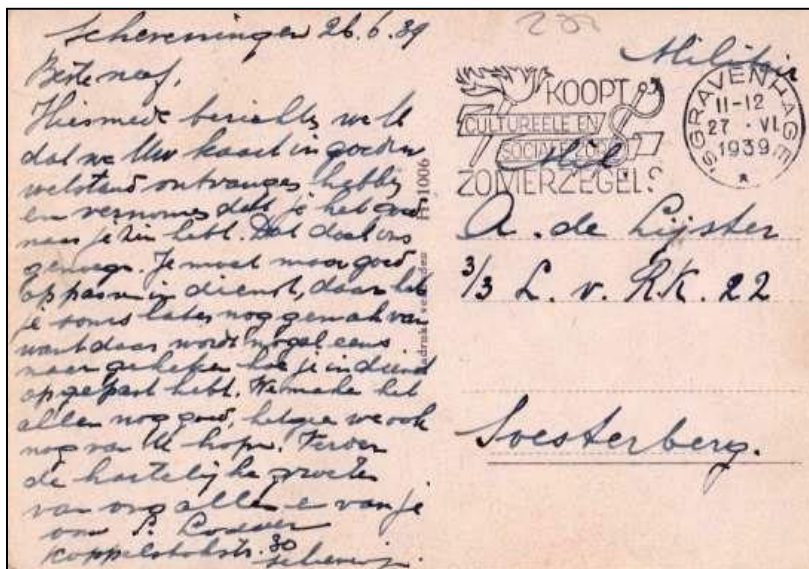 Scheveningen 26.6.39
Beste neef,
Hiermede berichten we U
dat we Uw kaart in goeden
welstand ontvangen hebben
en vernomen dat je het goed
naar je zin hebt. Dat doet ons
genoegen. Je moet maar goed
oppassen in dienst, daar heb
je soms later nog gemak van
want daar wordt nogal eens
naar gekeken hoe je in dienst
opgepast hebt. We maken het
allen nog goed, hetgeen we ook
nog van U hopen. Verder
de hartelijke groeten
van ons allen en van je
oom
Koppelstokstr. 30
Schevening.
FF 1006
Militair
KOOPT
CULTUREELE EN
SOCIALE ZORG
ZOMERZEGELS
'S GRAVENHAGE
11-12
27 · VI
1939
Mil
A. de Lijster
3/3 L. v. R.K. 22
Soesterberg.